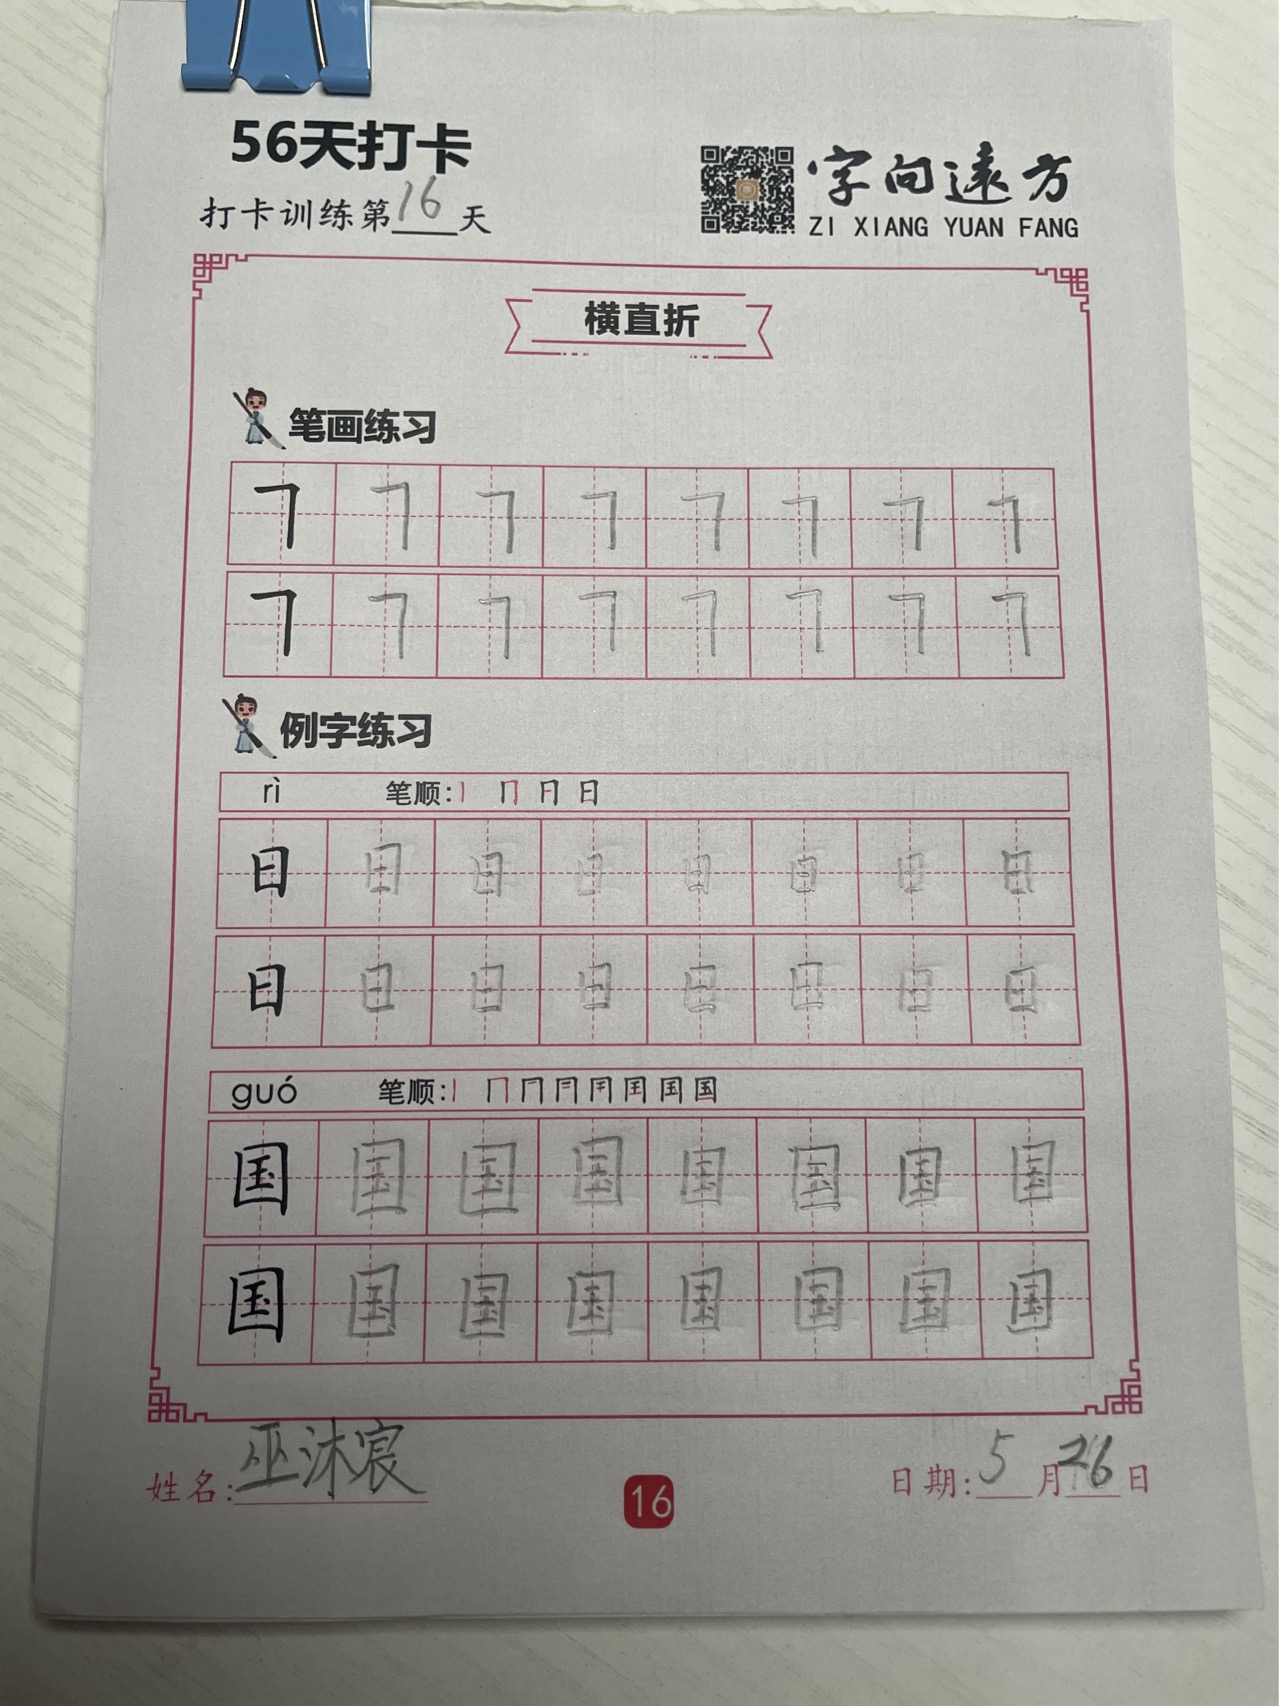 56天打卡
打卡训练第16天
字向遠方
ZI XIANG YUAN FANG
横直折
笔画练习
㇕ ㇕ ㇕ ㇕ ㇕ ㇕ ㇕ ㇕
㇕ ㇕ ㇕ ㇕ ㇕ ㇕ ㇕ ㇕
例字练习
rì 笔顺:丨 冂 日 日
日 日 日 日 日 日 日 日
日 日 日 日 日 日 日 日
guó 笔顺:丨 冂 国
国 国 国 国 国 国 国 国
国 国 国 国 国 国 国 国
姓名:巫沐宸
16
日期:5月26日